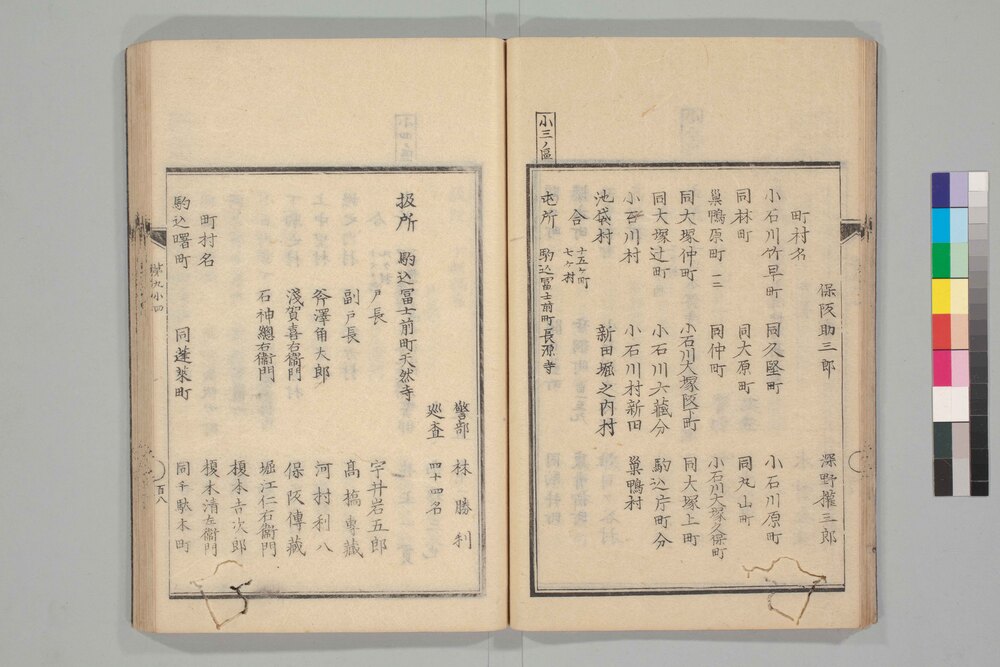 保阪助三郎 深野權三郎
町村名
小石川竹早町 同久堅町 小石川原町
同林町 同大原町 同丸山町
巣鴨原町 一二 同仲町 小石川大塚久保町
同大塚仲町 小石川大塚阪下町 同大塚上町
同大塚辻町 小石川六番分 駒込片町分
小石川村 小石川村新田 巣鴨村
池袋村 新田堀之内村
合 十五ヶ町 七ヶ村
小三ノ區
屯所 駒込冨士前町長源寺
警部 林勝利
巡査 四十四名
扱所 駒込冨士前町天然寺
戸長 宇井岩五郎
副戸長 髙橋專藏
斧澤角太郎 河村利八
淺賀喜右衞門 保阪傳藏
石神總右衞門 堀江仁右衞門
榎本吉次郎
町村名 榎本清左衞門
駒込曙町 同蓬萊町 同千駄木町
第九小四
百八